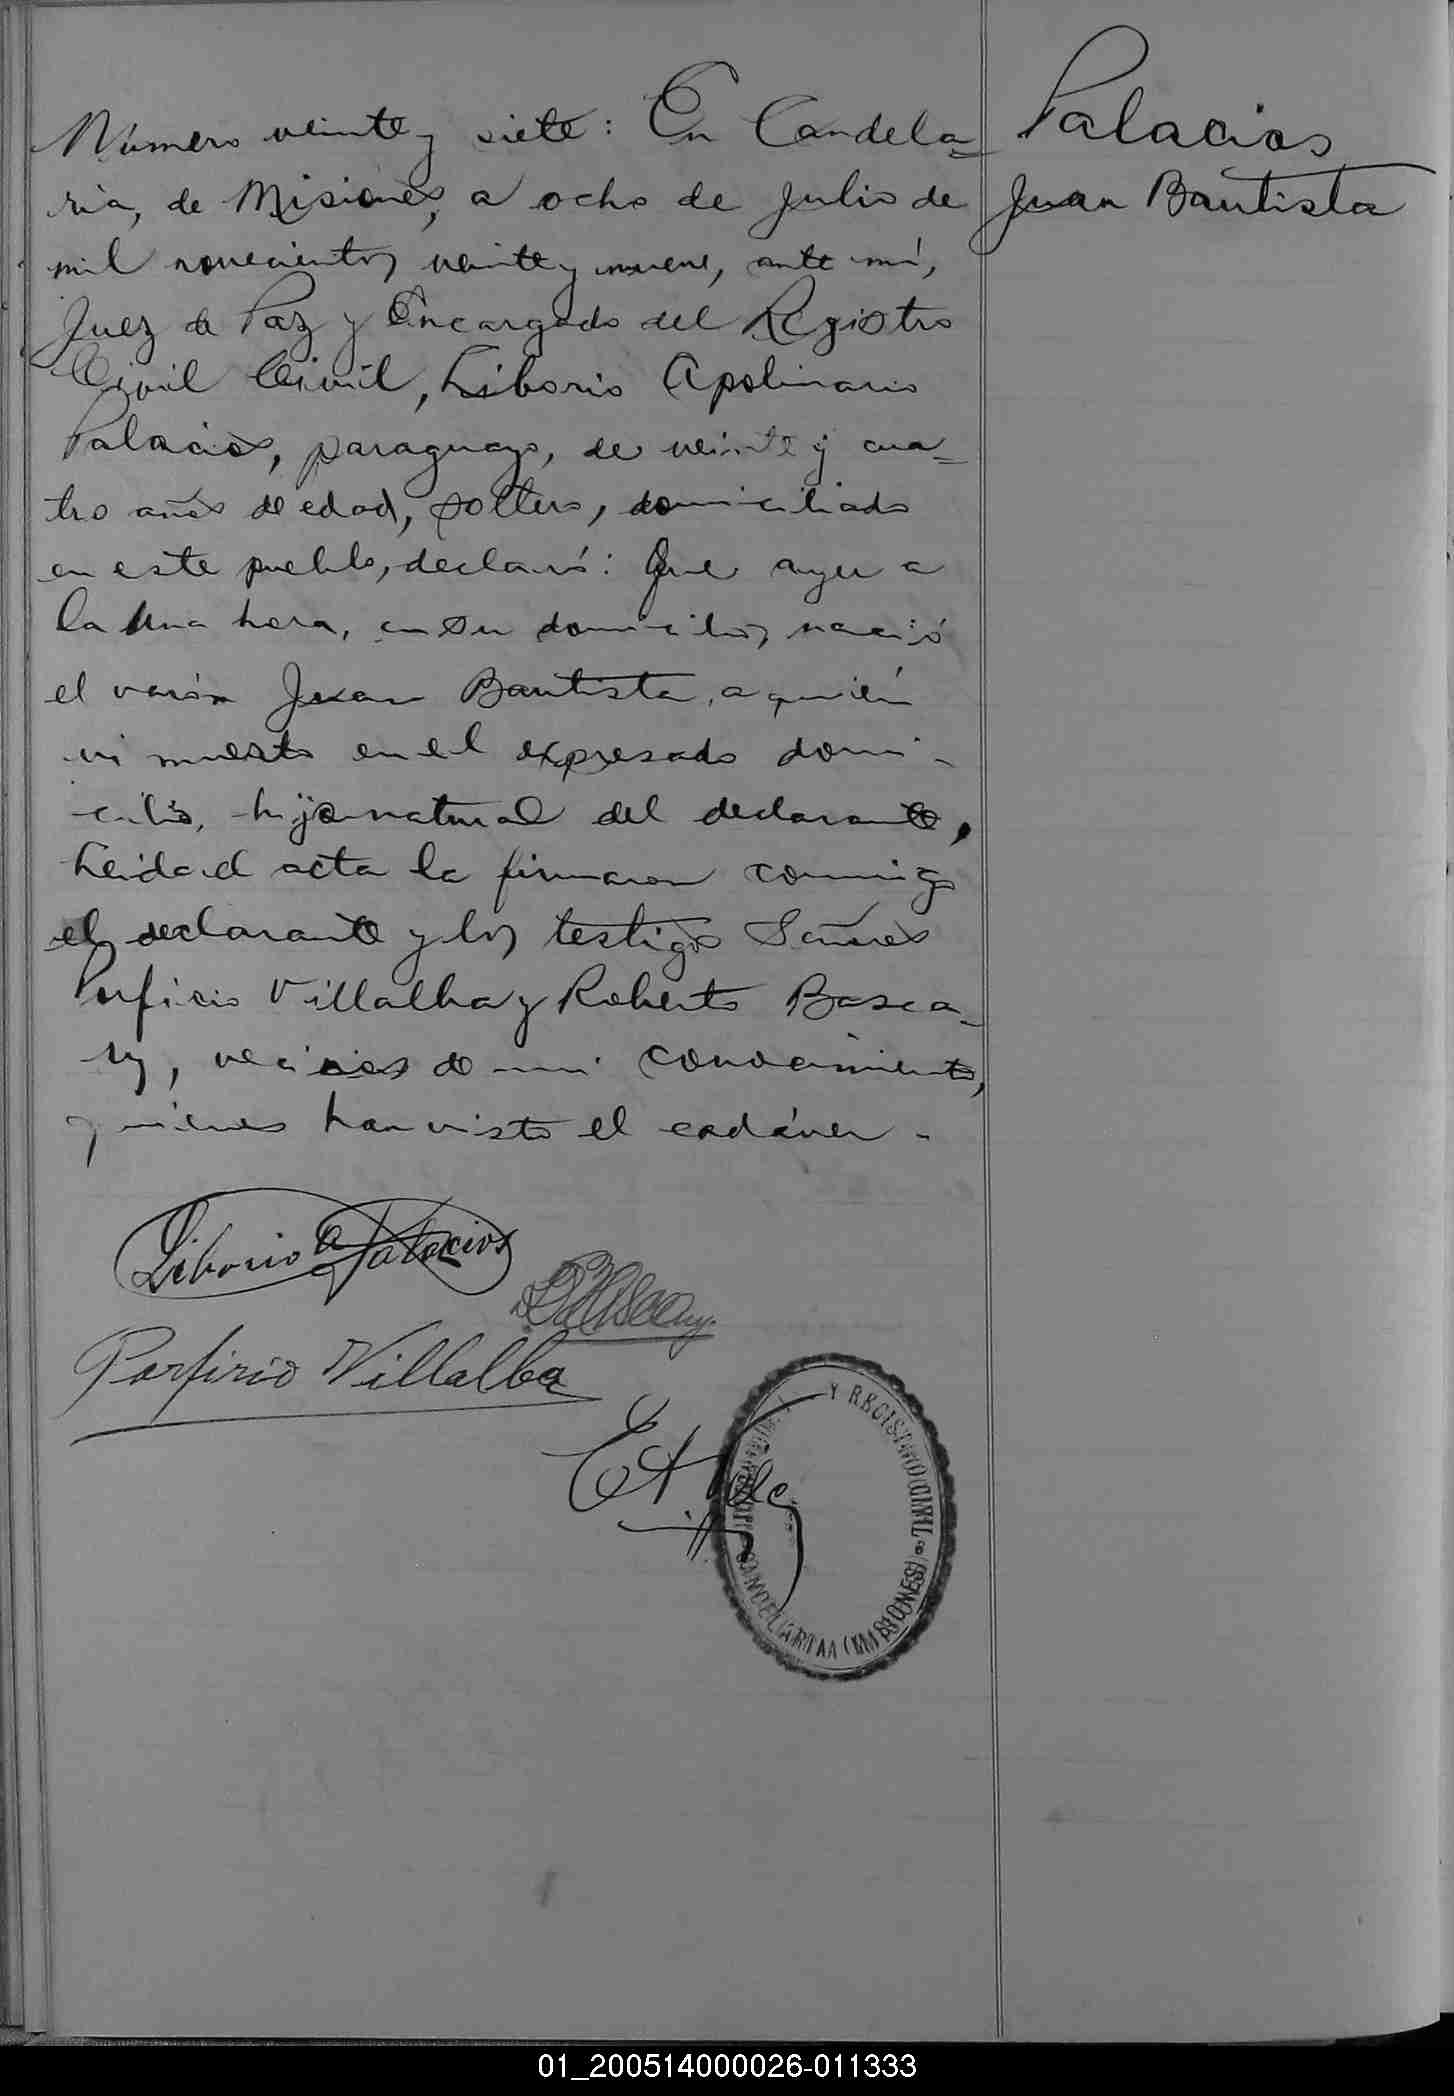 Número veinte y siete: En Candela=
ria, de Misiones, a ocho de Julio de
mil novecientos veinte y nueve, ante mí,
Juez de Paz y Encargado del Registro
Civil Civil, Liborio Apolinario
Palacios, paraguayo, de veinte y cua=
tro años de edad, soltero, domiciliado
en este pueblo, declaró: Que ayer a
la una hora, en su domicilio, nació
el varón Juan Bautista, a quién
vi muerto en el expresado domi-
cilio, hijo natural del declarante,
Leida el acta la firmaron conmigo
el declarante y los testigos Señores
Porfirio Villalba y Roberto Basca-
ry, vecinos de mi conocimiento,
quienes han visto el cadáver.-
Palacios
Juan Bautista
Liborio A Palacios
Porfirio Villalba
Y REGISTRO CIVIL
CANDELARIA (MISIONES)
01_200514000026-011333